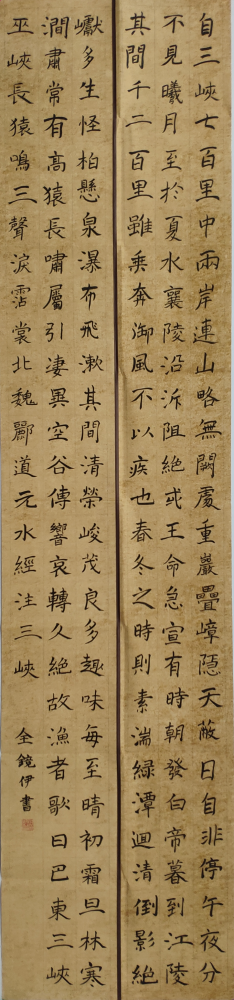 自三峽七百里中兩岸連山略無闕處重巖疊嶂隱天蔽日自非停午夜分
不見曦月至於夏水襄陵沿泝阻絕或王命急宣有時朝發白帝暮到江陵
其間千二百里雖乘奔御風不以疾也春冬之時則素湍綠潭迴清倒影絕
巘多生怪柏懸泉瀑布飛漱其間清榮峻茂良多趣味每至晴初霜旦林寒
澗肅常有高猿長嘯屬引淒異空谷傳響哀轉久絕故漁者歌曰巴東三峽
巫峽長猿鳴三聲淚霑裳北魏酈道元水經注三峽
全鏡伊書